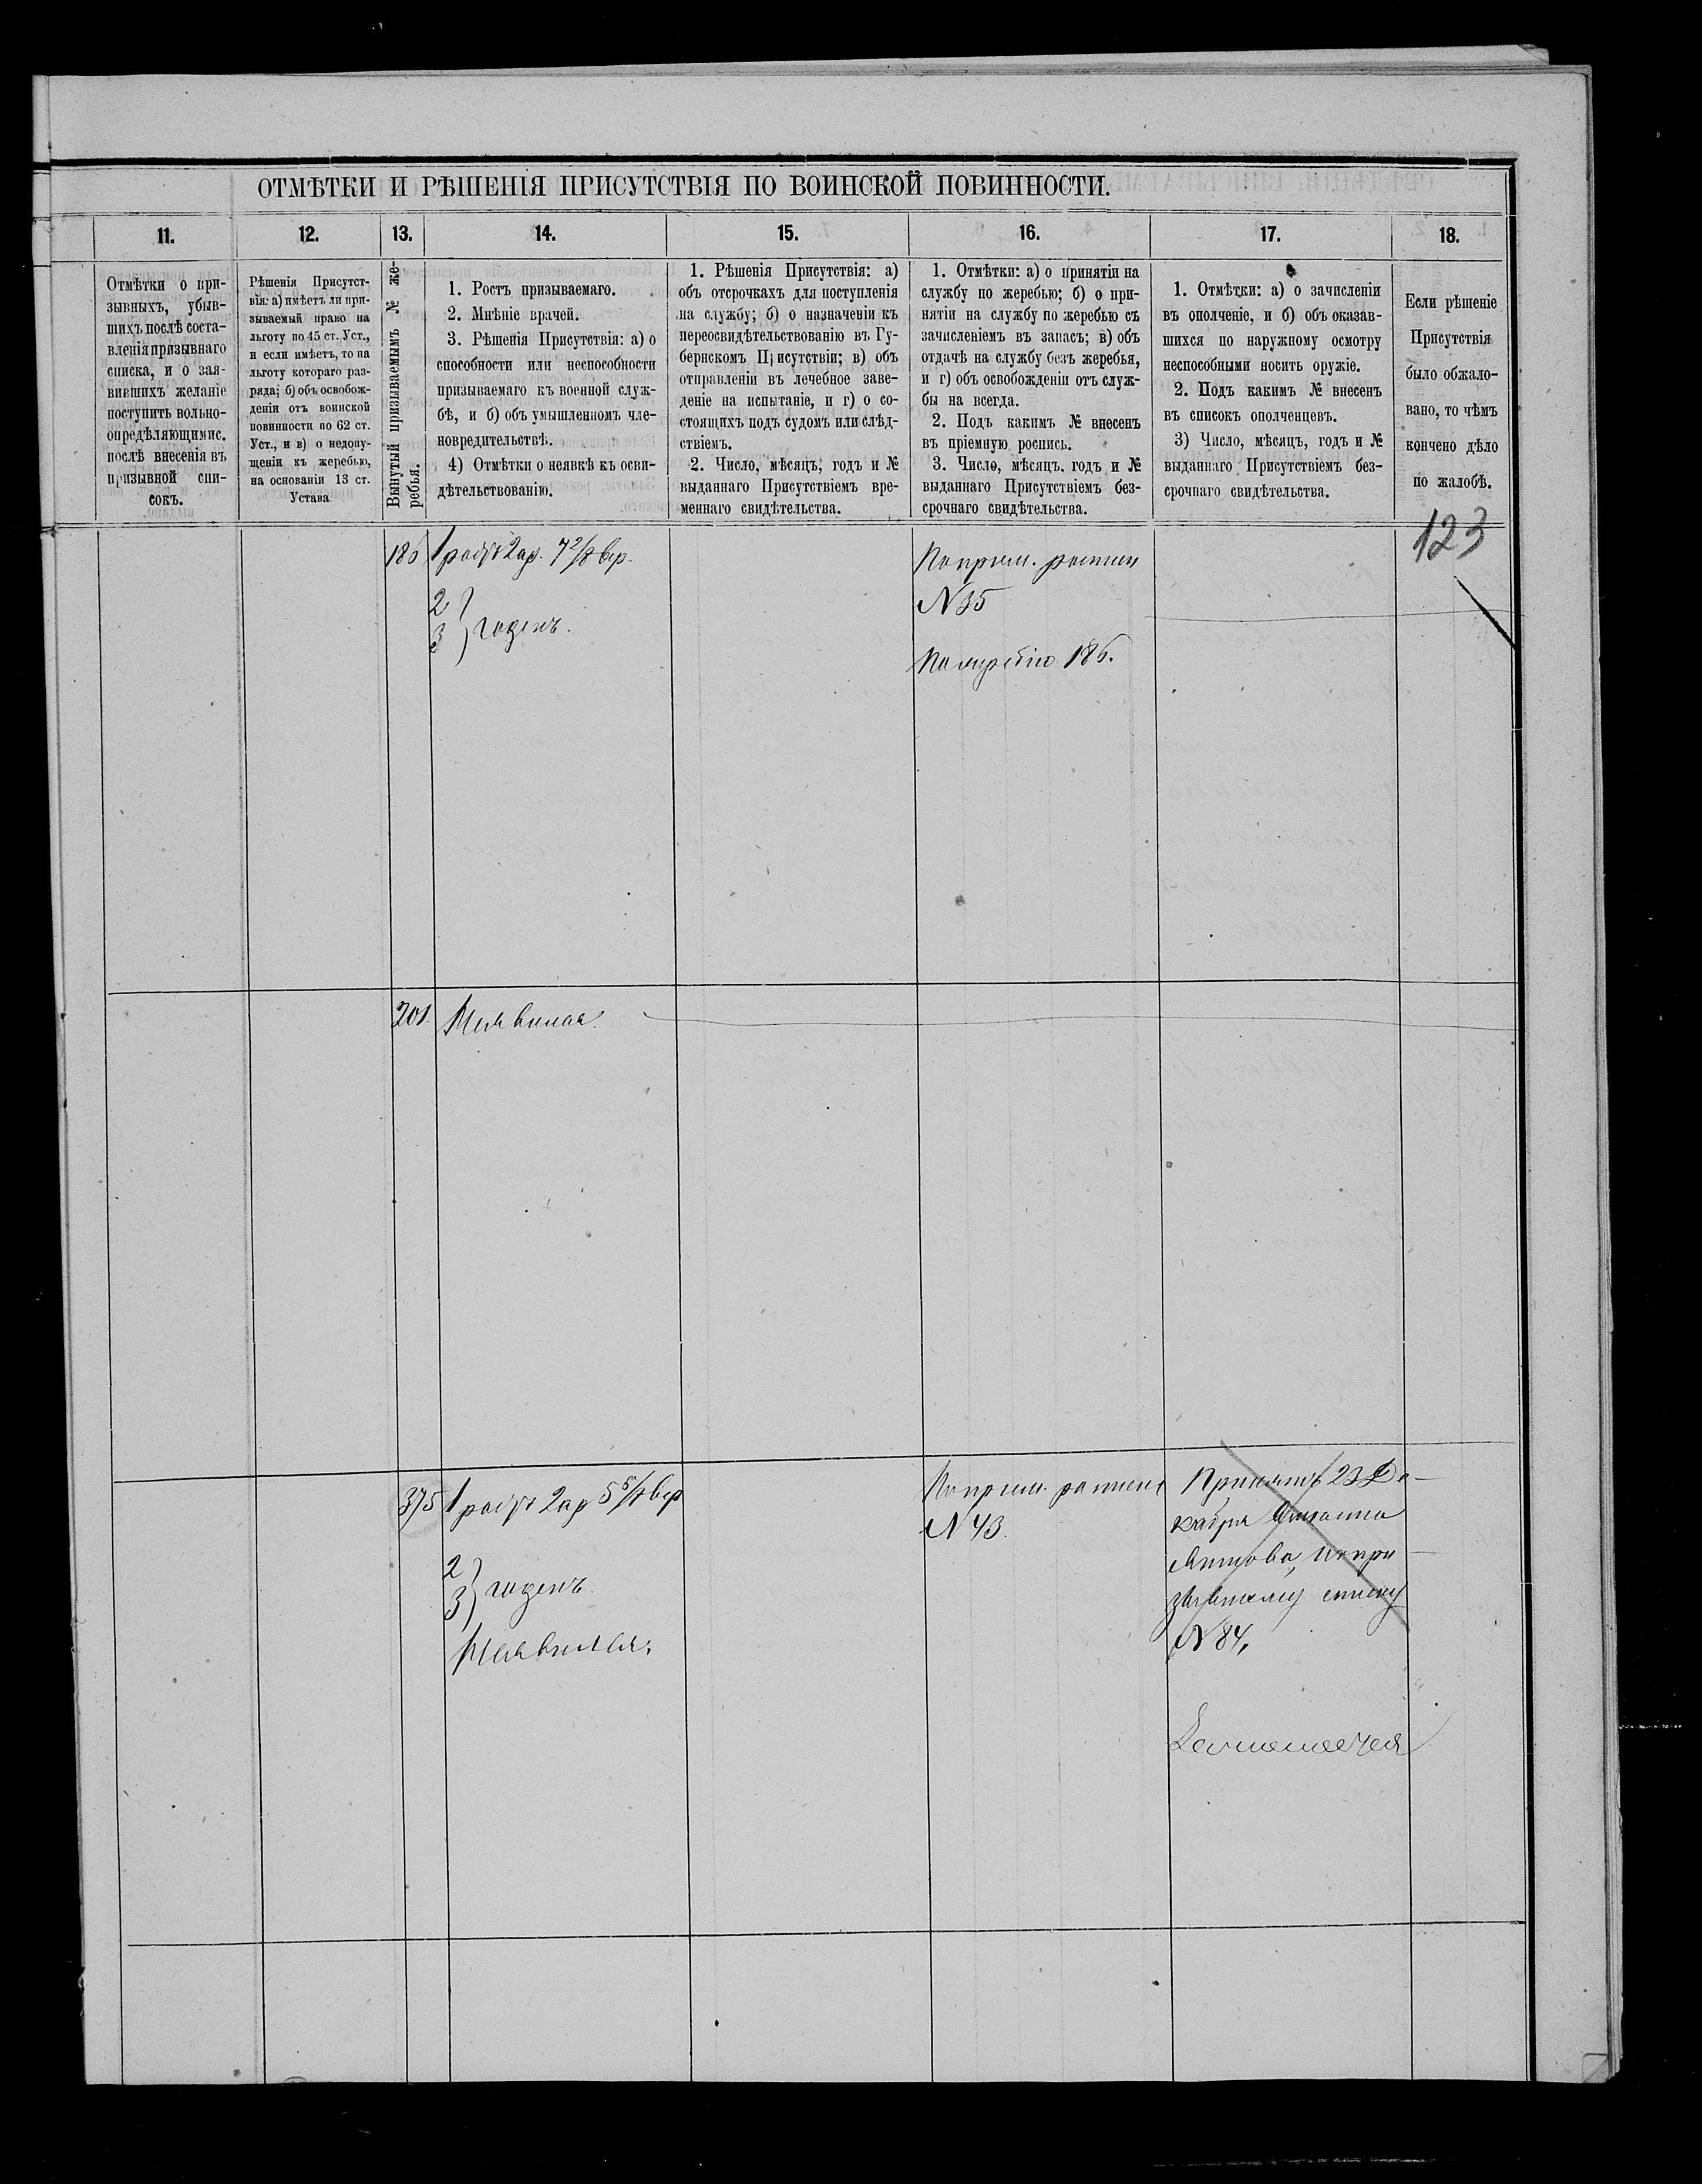 ОТМѢТКИ И РѢШЕНІЯ ПРИСУТСТВІЯ ПО ВОИНСКОЙ ПОВИННОСТИ.
11.
12.
13.
14.
15.
16.
17.
18.
Отмѣтки о при-
зывныхъ, убыв-
шихъ послѣ соста-
вленія призывнаго
списка, и о зая-
вившихъ желаніе
поступить вольно-
опредѣляющимис.
послѣ внесенія въ
призывной спи-
сокъ.
Рѣшенія Присутст-
вія: а) имѣетъ ли при-
зываемый право на
льготу по 45 ст. Уст.,
и если имѣетъ, то на
льготу котораго раз-
ряда; б) объ освобож-
деніи отъ воинской
повинности по 62 ст.
Уст., и в) о недопу-
щеніи къ жеребью,
на основаніи 13 ст.
Устава
Вынутый призываемымъ № же-
ребья.
1. Ростъ призываемаго.
2. Мнѣніе врачей.
3. Рѣшенія Присутствія: а) о
способности или неспособности
призываемаго къ военной служ-
бѣ, и б) объ умышленномъ чле-
новредительствѣ.
4) Отмѣтки о неявкѣ къ осви-
дѣтельствованію.
1. Рѣшенія Присутствія: а)
объ отсрочкахъ для поступленія
на службу; б) о назначеніи къ
переосвидѣтельствованію въ Гу-
бернскомъ Присутствіи; в) объ
отправленіи въ лечебное заве-
деніе на испытаніе, и г) о со-
стоящихъ подъ судомъ или слѣд-
ствіемъ.
2. Число, мѣсяцъ, годъ и №
выданнаго Присутствіемъ вре-
меннаго свидѣтельства.
1. Отмѣтки: а) о принятіи на
службу по жеребью; б) о при-
нятіи на службу по жеребью съ
зачисленіемъ въ запасъ; в) объ
отдачѣ на службу безъ жеребья,
и г) объ освобожденіи отъ служ-
бы на всегда.
2. Подъ какимъ № внесенъ
въ пріемную роспись.
3. Число, мѣсяцъ, годъ и №
выданнаго Присутствіемъ без-
срочнаго свидѣтельства.
1. Отмѣтки: а) о зачисленіи
въ ополченіе, и б) объ оказав-
шихся по наружному осмотру
неспособными носить оружіе.
2. Подъ какимъ № внесенъ
въ списокъ ополченцевъ.
3) Число, мѣсяцъ, годъ и №
выданнаго Присутствіемъ без-
срочнаго свидѣтельства.
Если рѣшеніе
Присутствія
было обжало-
вано, то чѣмъ
кончено дѣло
по жалобѣ.
123
186
1 ростъ 2 ар. 7 2/8 вер.
2
3 } годенъ.
По прiем. росписи
№ 35
186.
201.
Неявился.
375
1 ростъ 2 ар 5 5/8 вер
2
3 } годенъ.
Неявился.
По прiем. росписи
№ 43.
Принятъ 23 Де-
кабря
по при
зывному списку
№ 84,